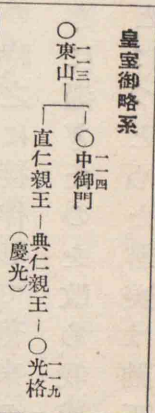 皇室御略系
一一三
○東山
一一四
○中御門
直仁親王―典仁親王―○光格
(慶光)
一一九